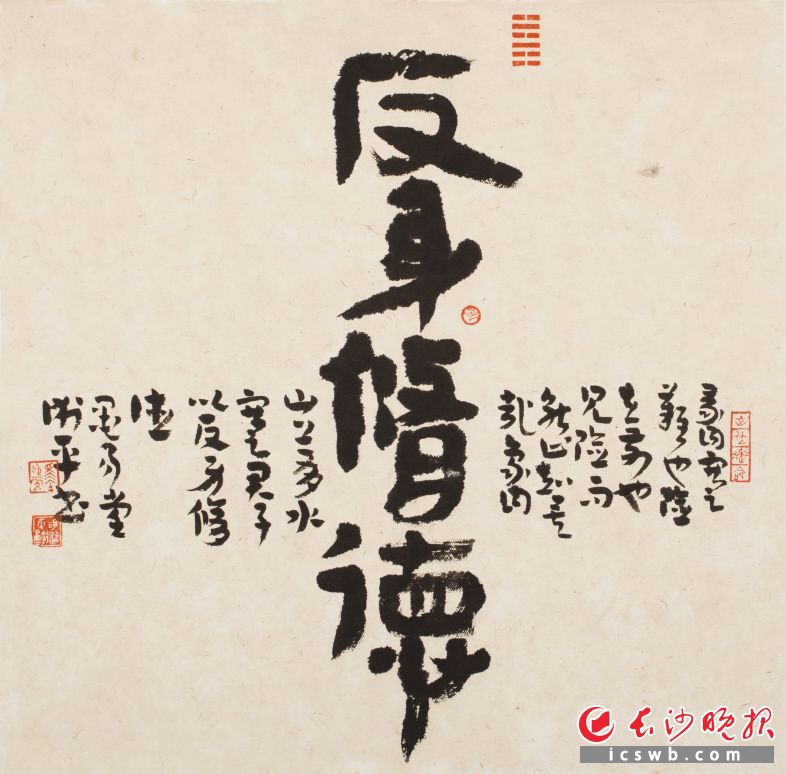 反身脩德
彖曰蹇
難也險
在前也
见險而
能止知矣
哉象曰
山上有水
蹇君子
以反身修
德
易堂
平书
长沙晚报
icswb.com